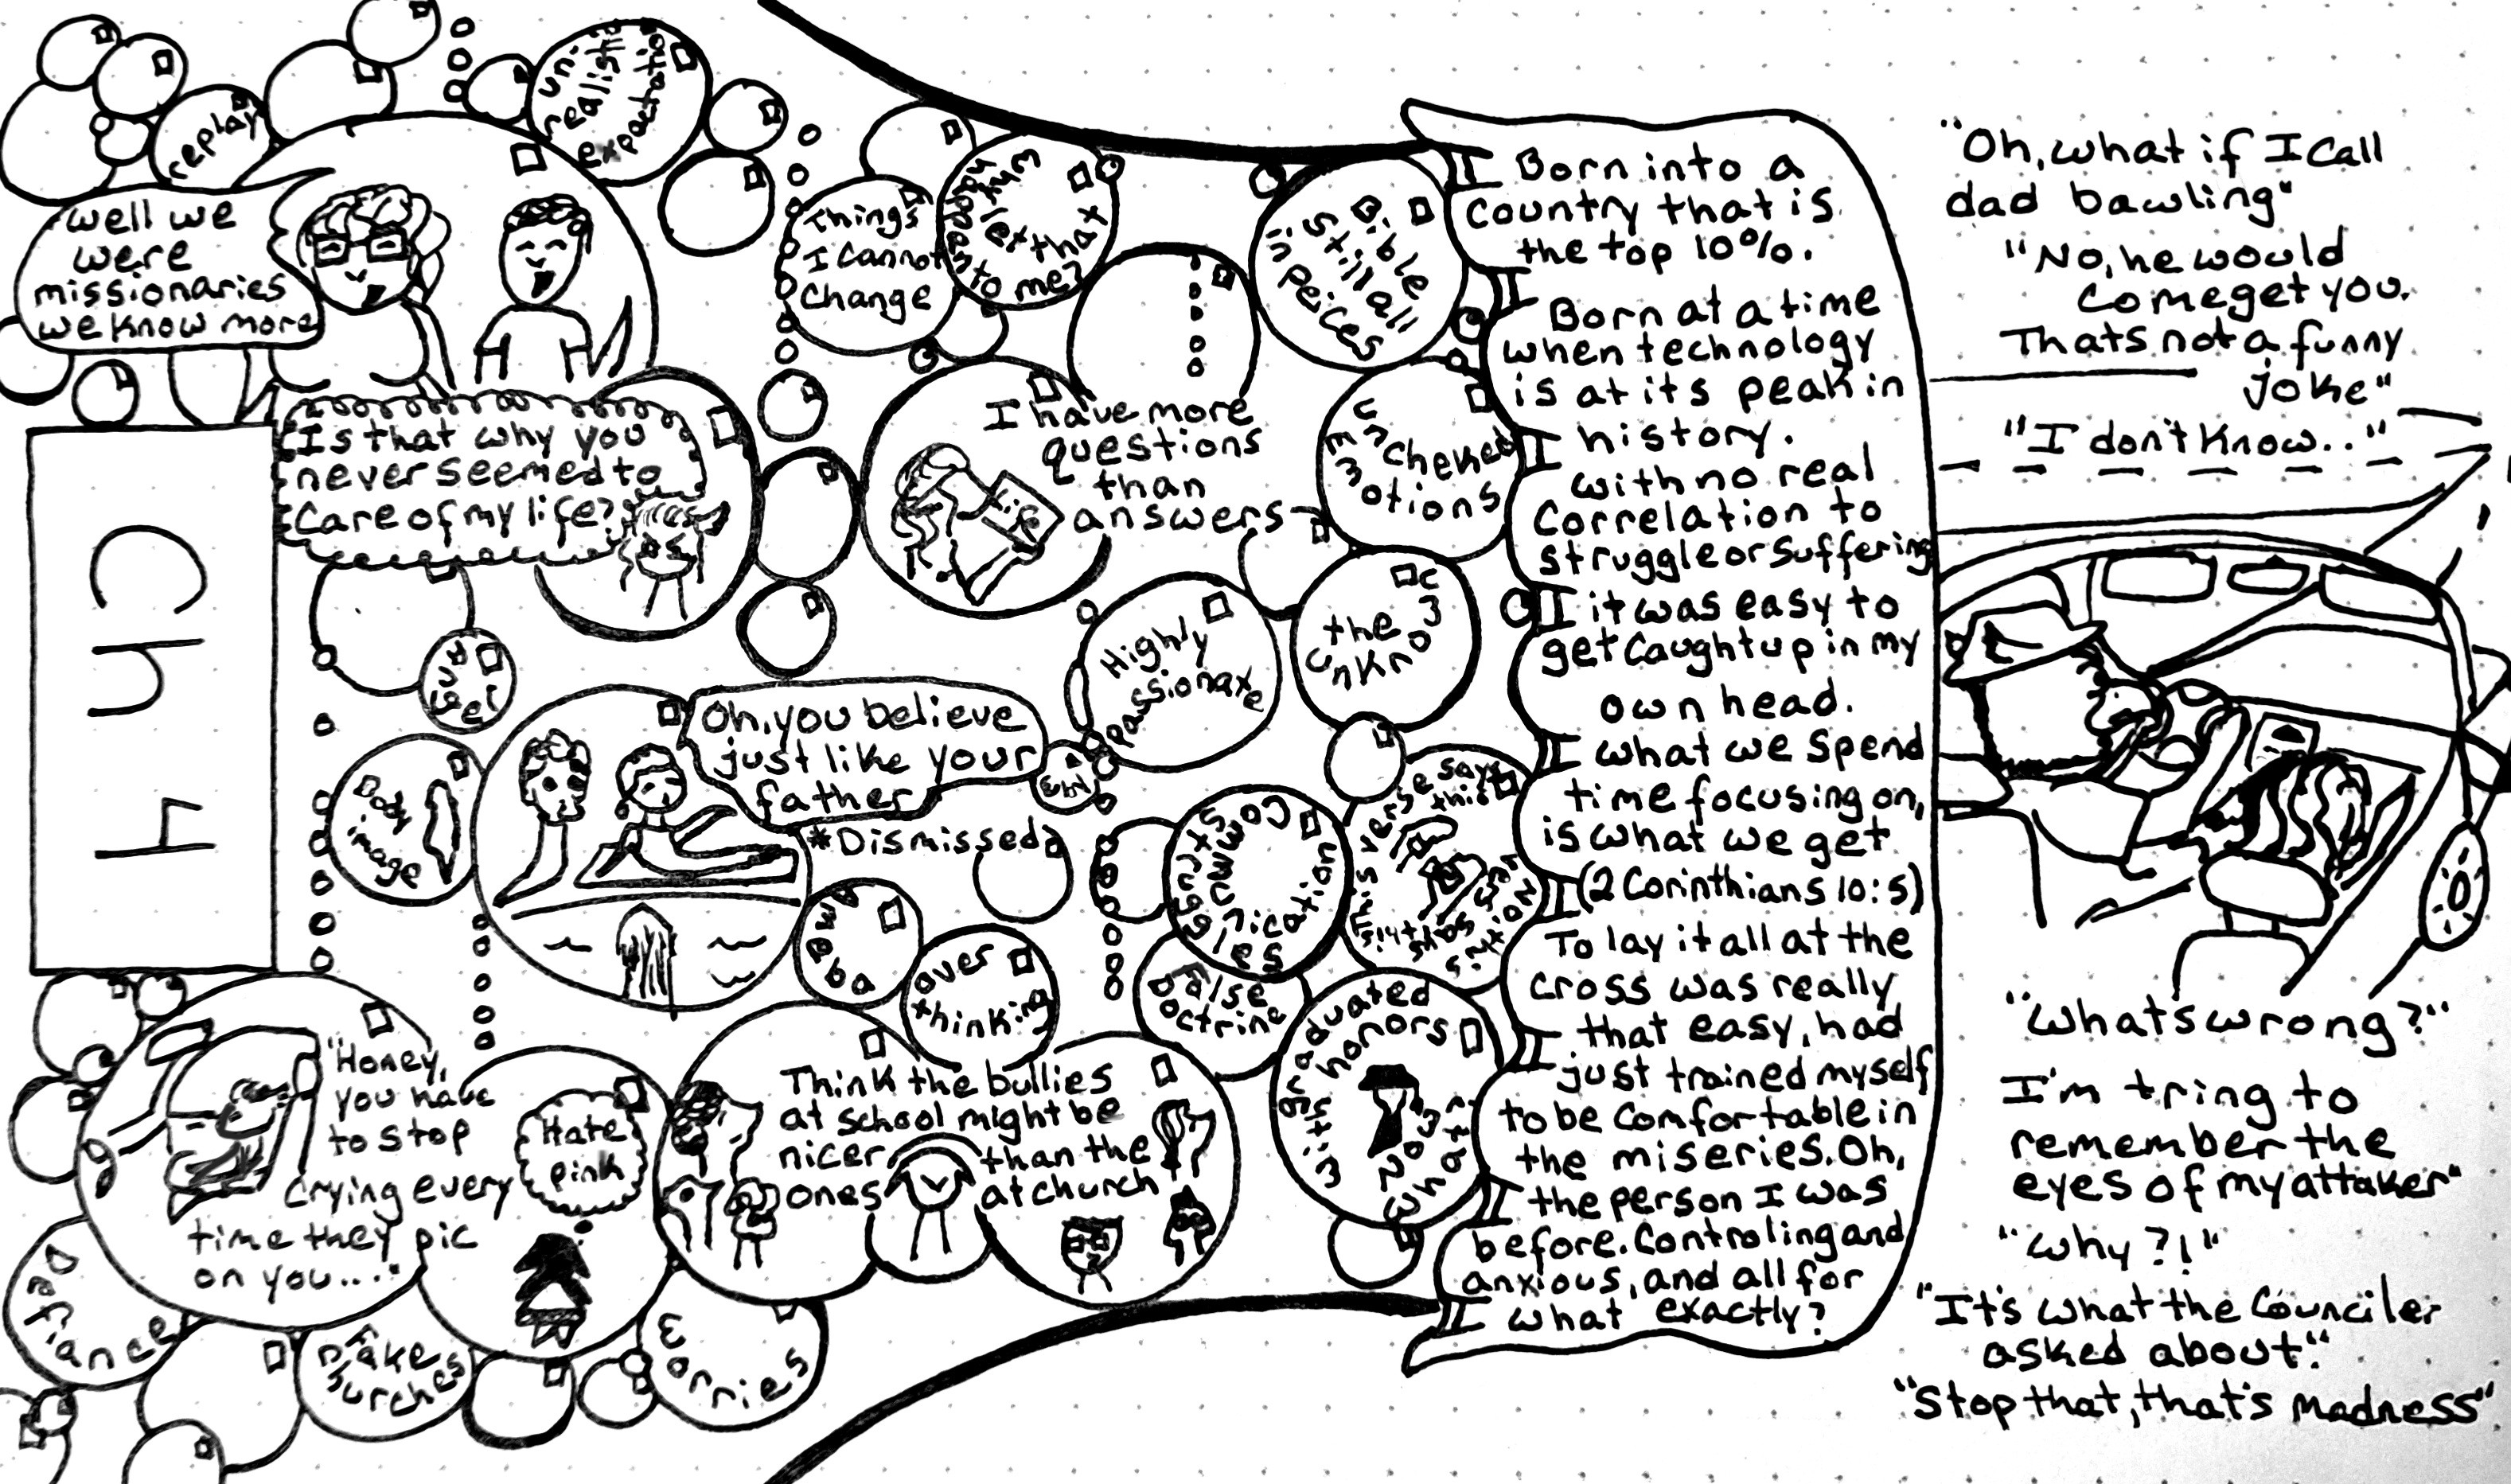 replay
well we
were
missionaries
we know more
Is that why you
never seemed to
care of my life?
Things
I cannot
Change
to me?
Bible
still all
I have more
questions
than
answers
unchecked
the
unkno
Highly
passionate
Oh, you believe
just like your
father
*Dismissed
Bad
image
over
thinking
False
doctrine
graduated
honors
"Honey,
you have
to stop
crying every
time they pic
on you...."
Hate
pink
Think the bullies
at school might be
nicer than the
ones at church
Fake
worries
Born into a
Country that is
the top 10%.
Born at a time
when technology
is at its peak in
history.
with no real
Correlation to
struggle or suffering
it was easy to
get caught up in my
own head.
what we spend
time focusing on,
is what we get
(2 Corinthians 10:5)
To lay it all at the
cross was really
that easy, had
just trained myself
to be comfortable in
the miseries. Oh,
the person I was
before. Controling and
anxious, and all for
what exactly?
"Oh, what if I call
dad bawling"
"No, he would
come get you.
Thats not a funny
joke"
"I don't know.."
"Whats wrong?"
I'm tring to
remember the
eyes of my attaker"
"Why?!"
"It's what the Counciler
asked about."
"Stop that, that's madness"